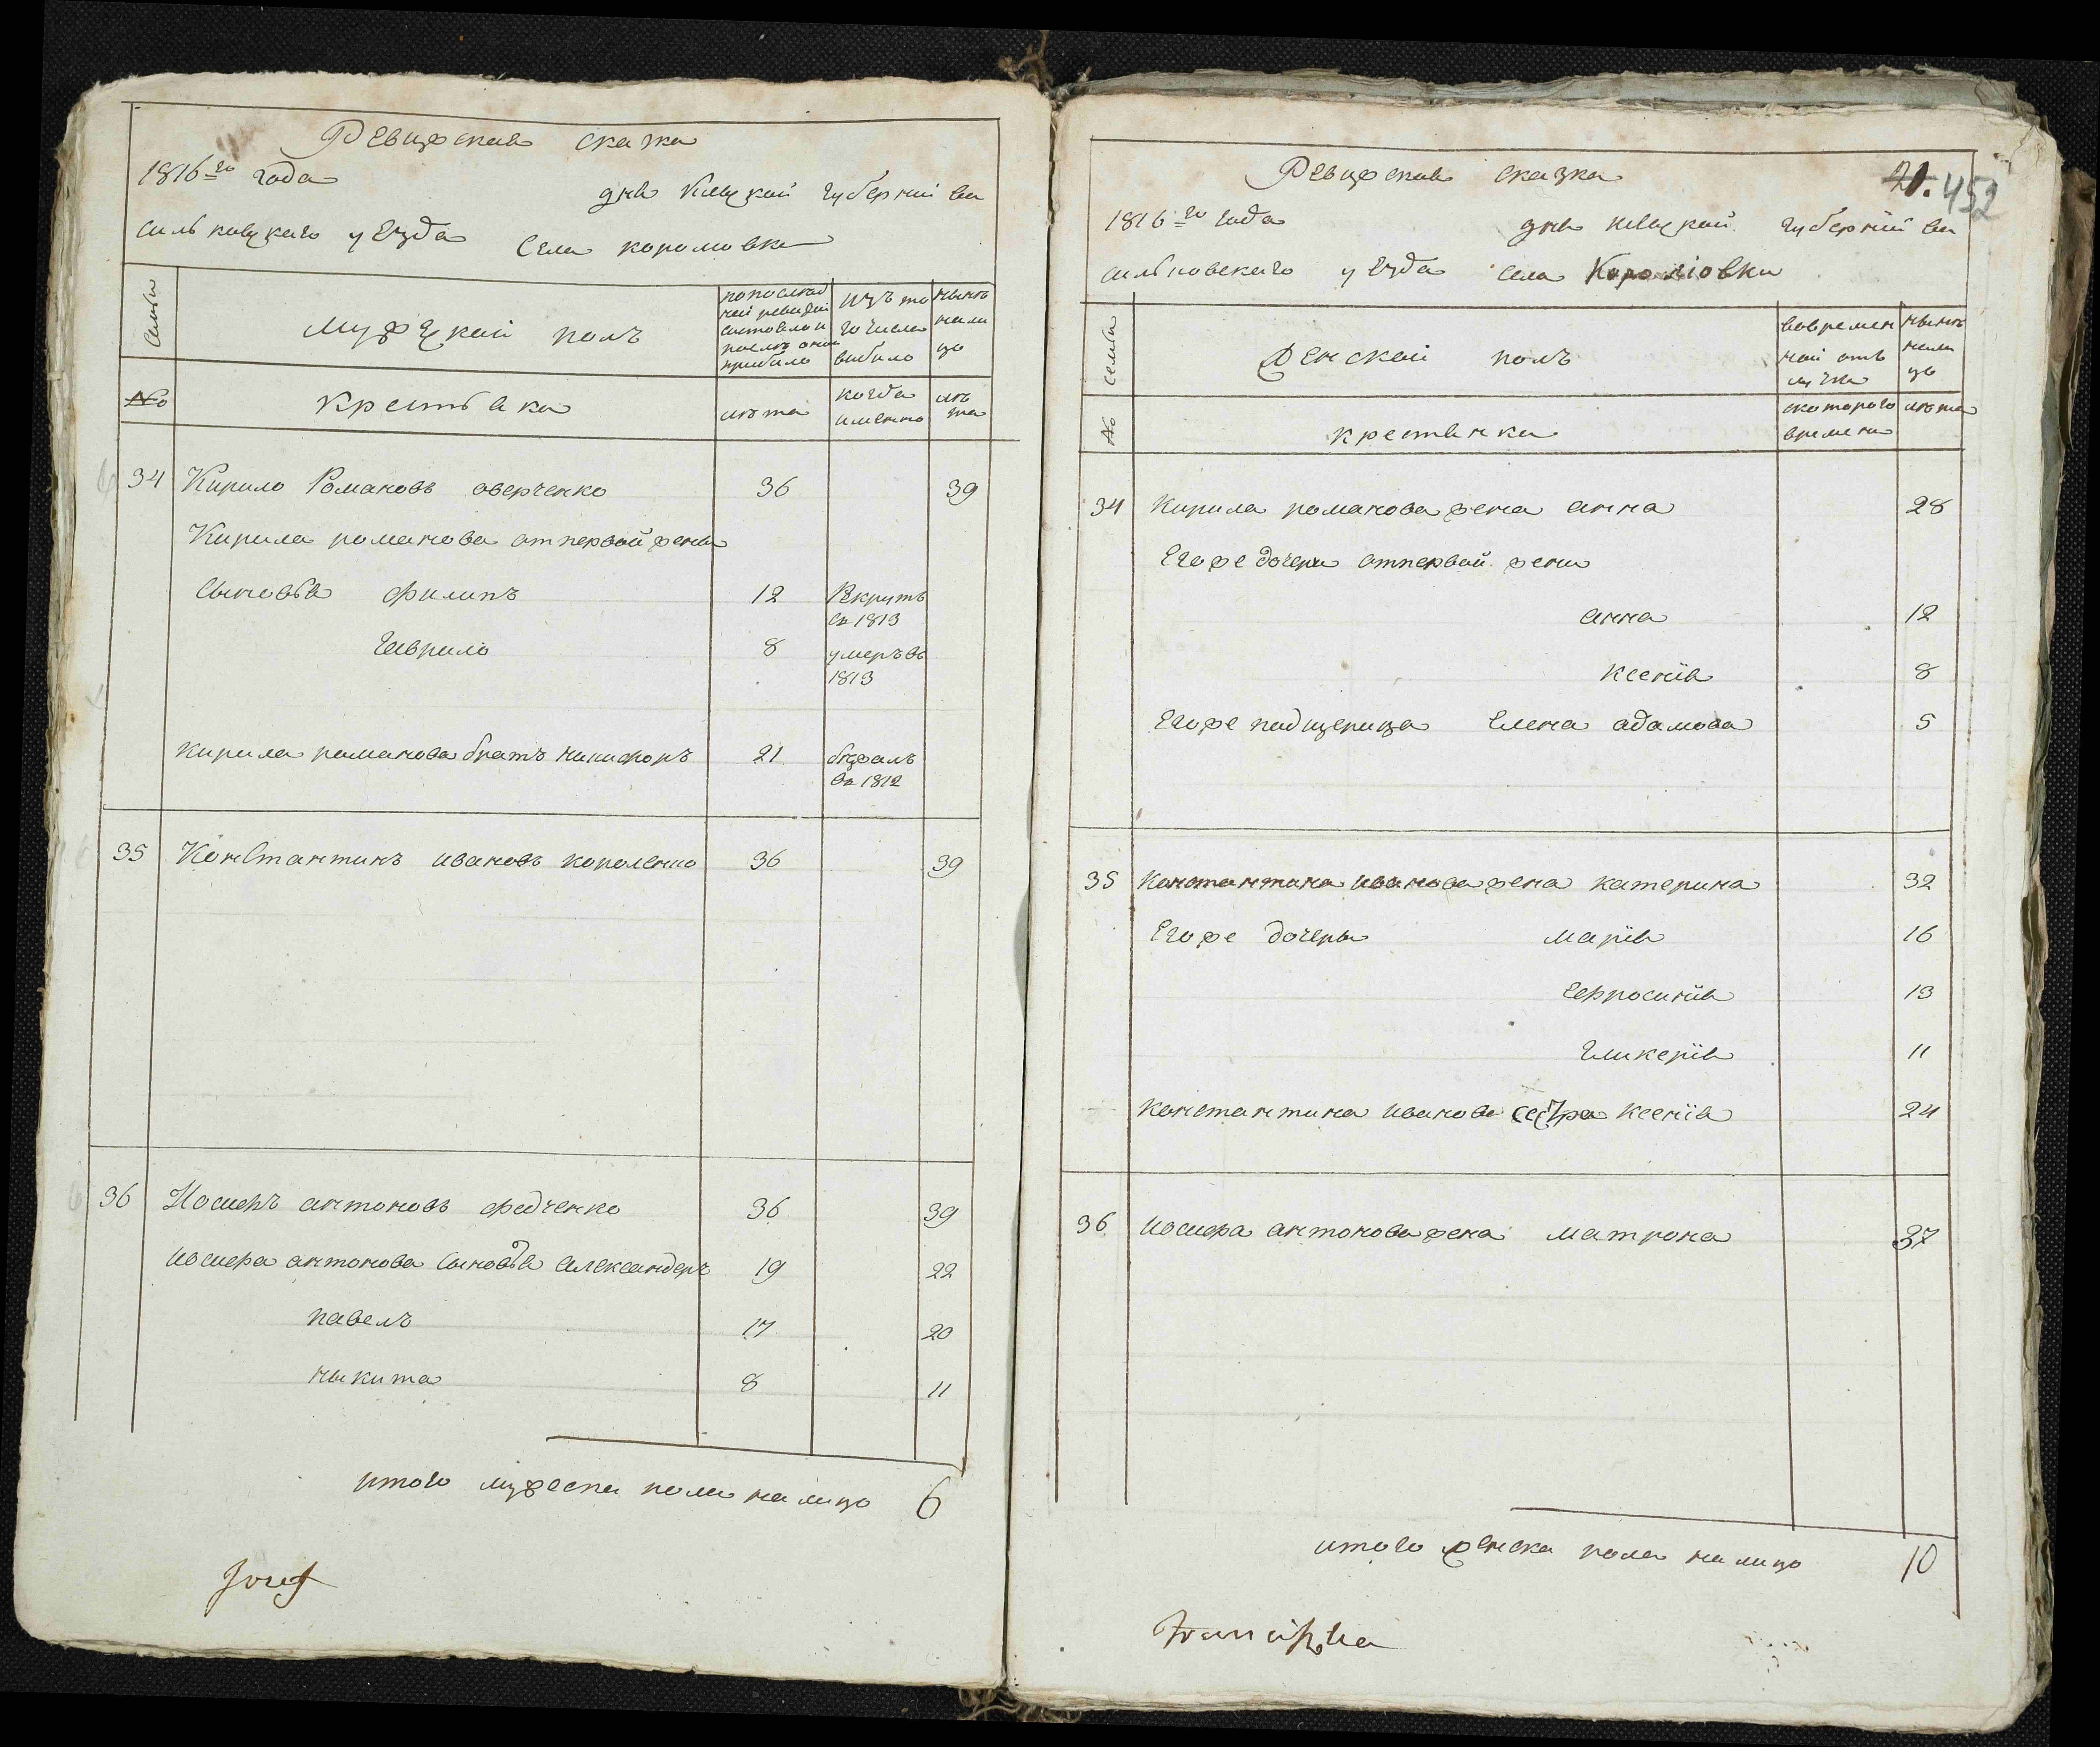 Ревизская сказка
1816го года
дня Киевской губернии Ва
сильковского уезда Села королювки
Семьи
Мужеской полъ
попослѣд
ней ревизіи
состояло и
послѣ оной
прибыло
изъ то
го числа
выбыло
нынѣ
нали
цо
№
крестьяна
лѣта
когда
именно
лѣ
та
34 Кирило Романовъ оверченко 36 39
Кирила романова отпервой жены
сыновья филипъ 12 Рекрутъ
въ 1813
гаврило 8 умеръ въ
1813
кирила романова братъ никифоръ 21 бѣжалъ
въ 1812
35 Константинъ ивановъ короленко 36 39
36 Иосифъ антоновъ федченко 36 39
иосифа антонова сыновья александеръ 19 22
павелъ 17 20
никита 8 11
итого мужеска пола налицо 6
Jozef
21. 452
Ревизская сказка
1816го года
дня киевской губерніи Ва
сильковского уезда села Королювки
семьи
Женской полъ
вовремен
ной отъ
лучке
нынѣ
нали
цо
№
крестьянки
скоторого
времени
лѣта
34 Кирила романова жена анна 28
Егоже дочери отпервой жены
анна 12
ксенія 8
Егоже падщерица Елена адамова 5
35 Константина иванова жена катерина 32
Егоже дочеры марія 16
Ефросинія 13
гликерія 11
константина иванова сестра ксенія 24
36 иосифа антонова жена матрона 37
итого женска пола налицо 10